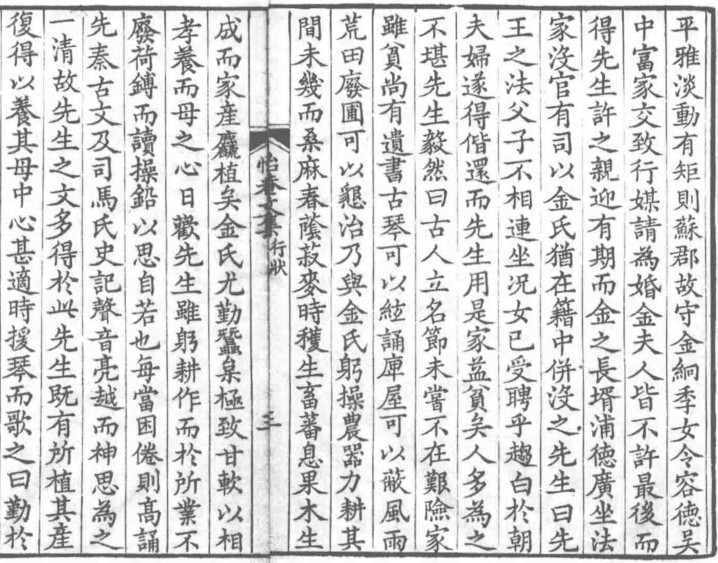 平雅淡動有矩則蘇郡故守金絅季女令容德吳
中富家交致行媒請為婚金夫人皆不許最後而
得先生許之親迎有期而金之長壻浦德廣坐法
家沒官有司以金氏猶在籍中併沒之先生曰先
王之法父子不相連坐况女已受聘乎趨白於朝
夫婦遂得偕還而先生用是家益貧矣人多為之
不堪先生毅然曰古人立名節未嘗不在艱險家
雖貧尚有遺書古琴可以絃誦庳屋可以蔽風雨
荒田廢圃可以懇治乃與金氏躬操農器力耕其
間未幾而桑麻春蔭菽麥時穫生畜蕃息果木生
怡菴文集 行狀 三
成而家産麤植矣金氏尤勤蠶枲極致甘軟以相
孝養而母之心日歡先生雖躬耕作而於所業不
廢荷鎛而讀操鉛以思自若也每當困倦則高誦
先秦古文及司馬氏史記聲音亮越而神思為之
一清故先生之文多得於此先生既有所植其產
復得以養其母中心甚適時援琴而歌之曰勤於